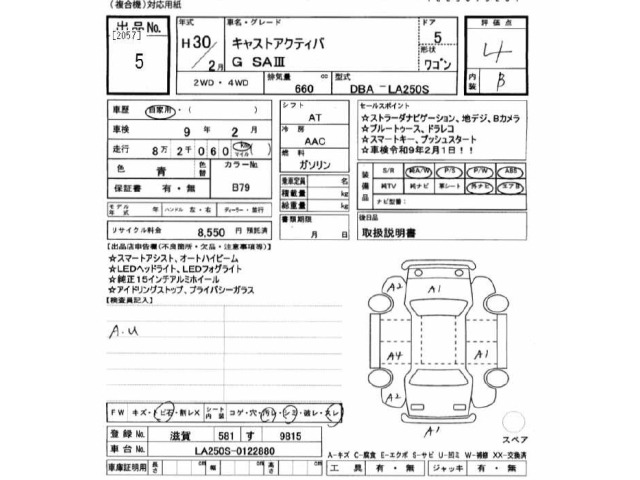 (複合機)対応用紙
出品No.
[2057]
5
年式 車名・グレード ドア
H30/2月 キャストアクティバ 5
G SAⅢ 形状
ワゴン
2WD・4WD 排気量 660 cc 型式 DBA－LA250S
評価点
4
内装 B
車歴 自家用・( )
車検 9年 2月
走行 8万2千060 km マイル
色 青 色替 カラーNo.
保証書 有・無 B79
モデル年式 年 ハンドル 左・右 ディーラー・並行
リサイクル料金 8,550 円 預託済
シフト
AT
冷房
AAC
燃料
ガソリン
乗車定員 名
積載量 kg
総重量 kg
書類期限
月 日
セールスポイント
☆ストラーダナビゲーション、地デジ、Bカメラ
☆ブルートゥース、ドラレコ
☆スマートキー、プッシュスタート
☆車検令和9年2月1日！！
装備品 S/R 純A/W P/S P/W ABS
純TV 純ナビ 革シート 外ナビ エアB
ナビ型番:
後日品
取扱説明書
【出品店申告欄(不良箇所・欠品・注意事項等)】
☆スマートアシスト、オートハイビーム
☆LEDヘッドライト、LEDフォグライト
☆純正15インチアルミホイール
☆アイドリングストップ、プライバシーガラス
【検査員記入】
A.U
A2 A1
A4 A1
A2
A1
スペア
FW キズ・トビ石・割レX シート内装 コゲ・穴・汚レ・シミ・破レ・スレ
登録No. 滋賀 581 す 9815
車台No. LA250S-0122880
A-キズ C-腐食 E-エクボ S-サビ U-凹ミ W-補修 XX-交換済
車庫証明用 長さ cm 幅 cm 高さ cm
工具 有・無 ジャッキ 有・無